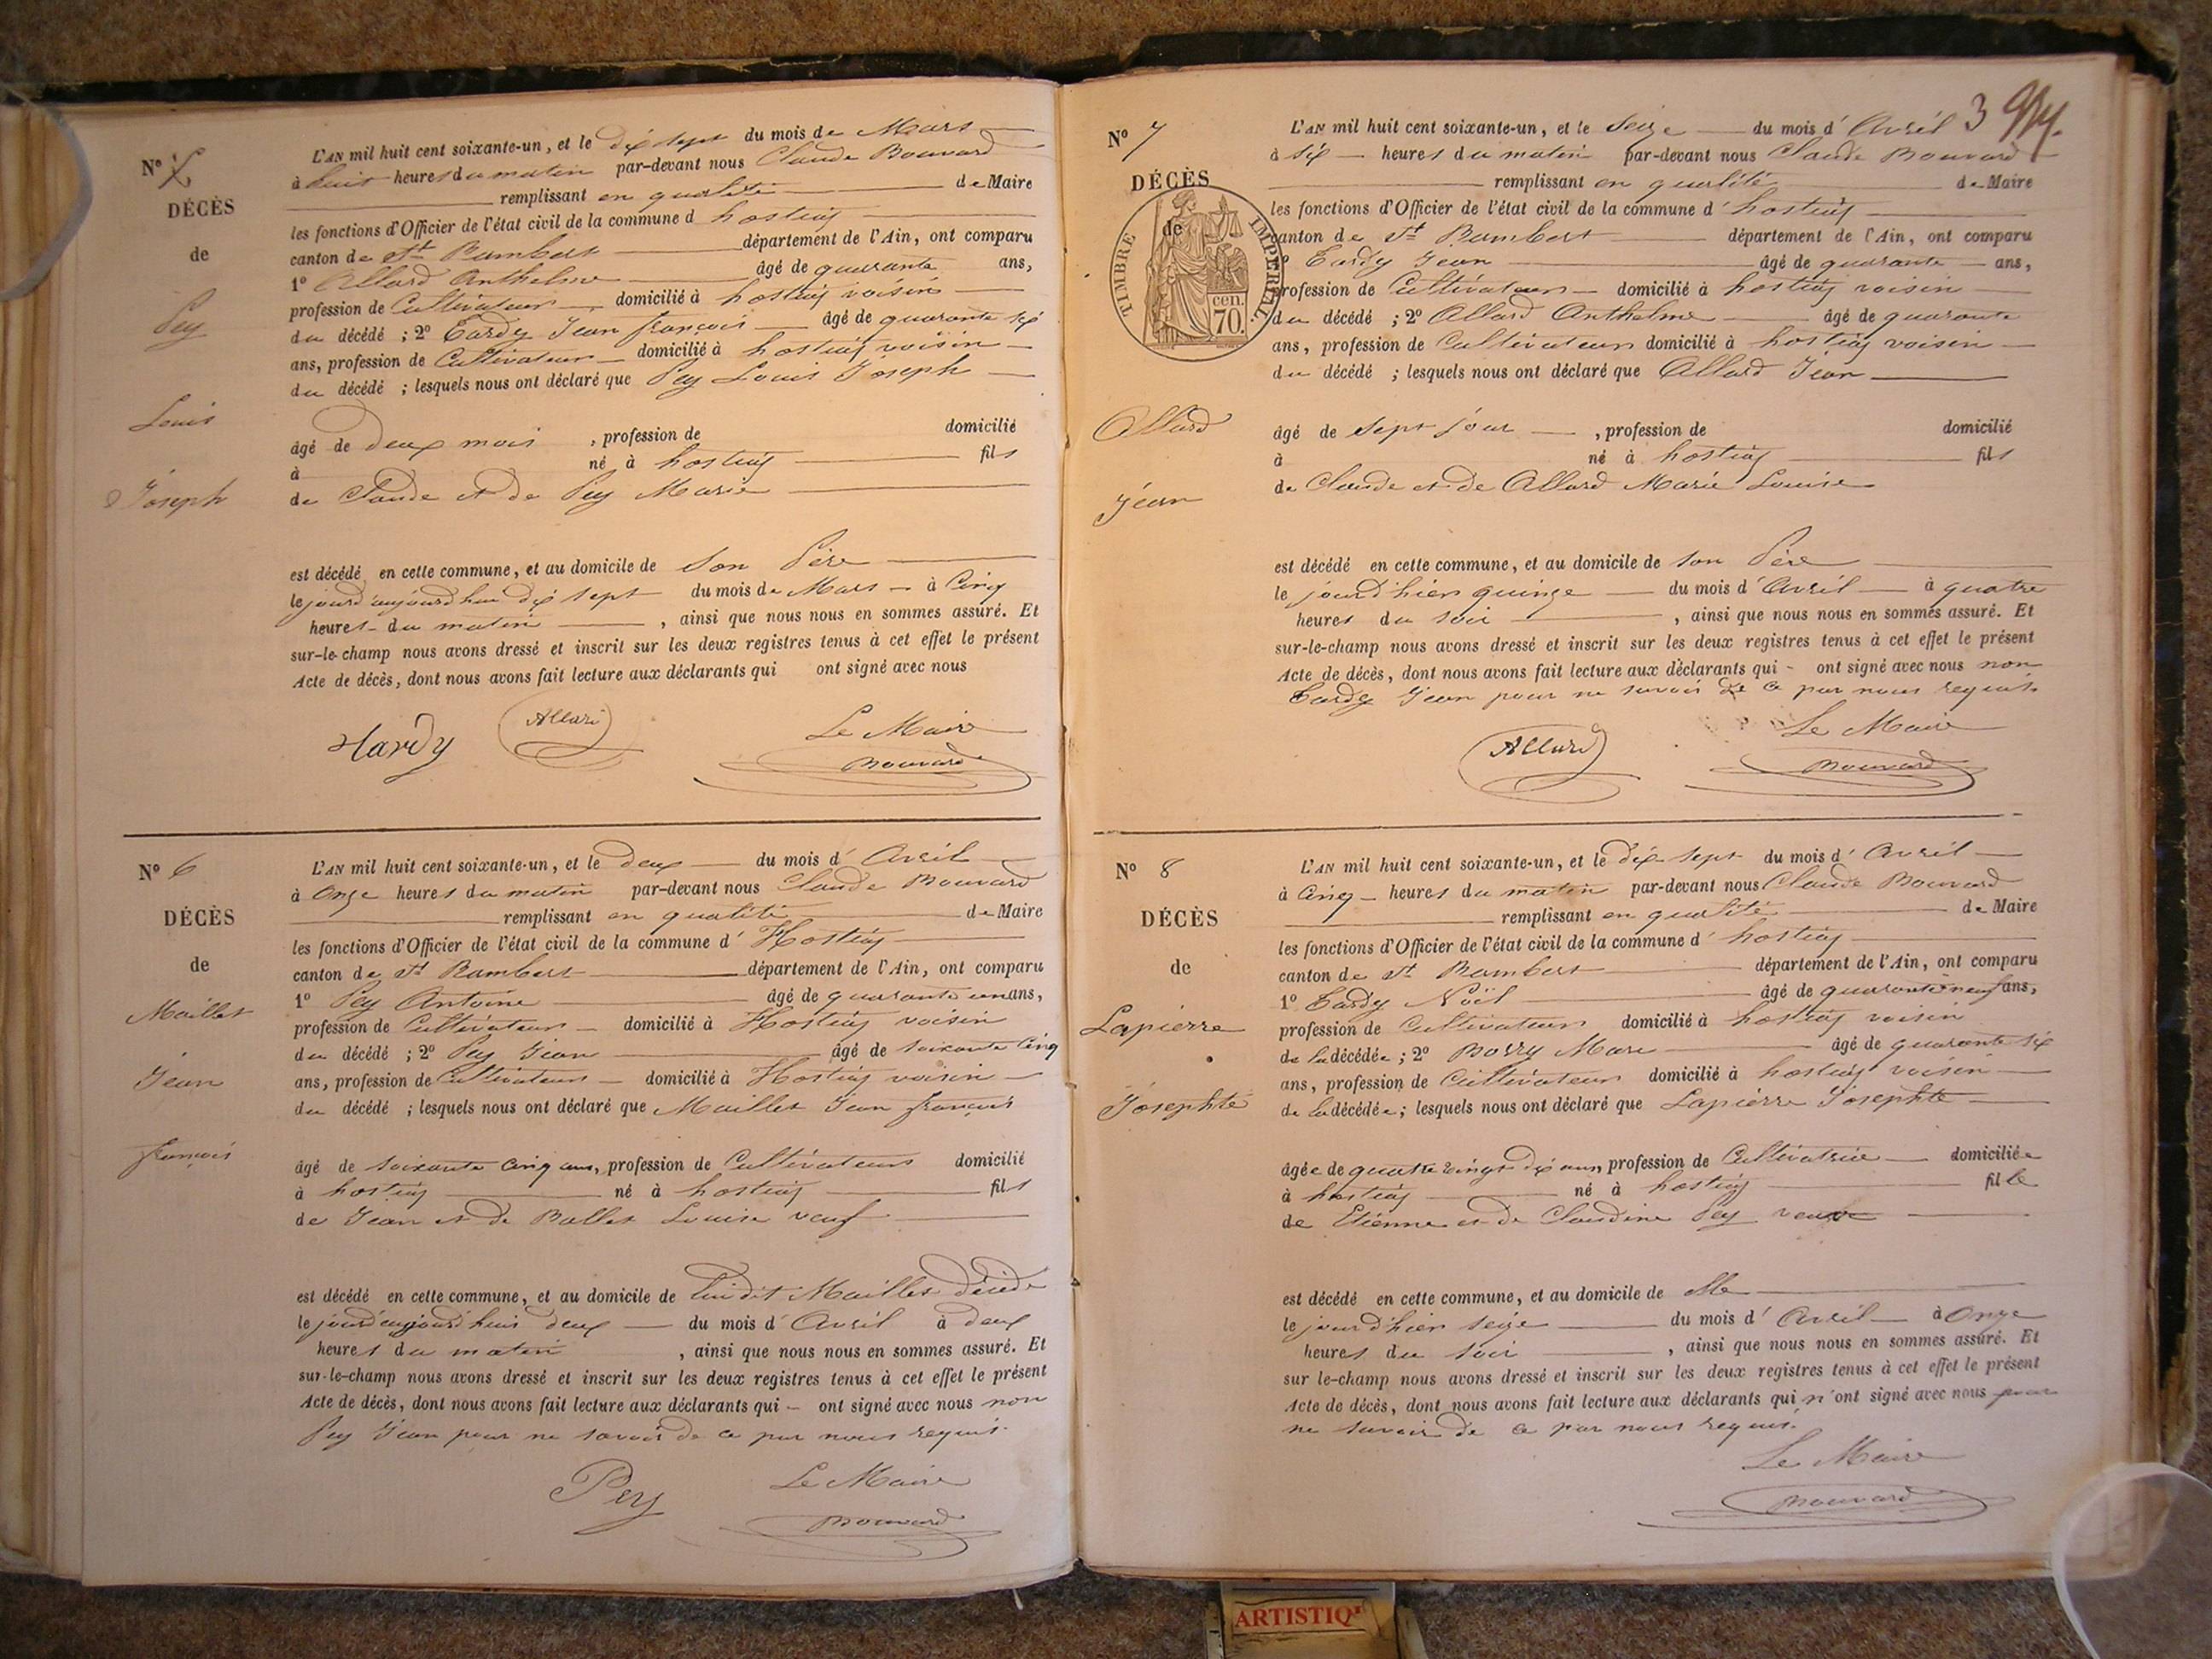 N° 5
DÉCÈS
de
Pey
Louis
Joseph
L'AN mil huit cent soixante-un, et le dix sept du mois de Mars
à huit heures du matin par-devant nous Claude Bouvard
remplissant en qualité de Maire
les fonctions d'Officier de l'état civil de la commune d hostiaz
canton de St Rambert département de l'Ain, ont comparu
1° Allard Anthelme âgé de quarante ans,
profession de Cultivateur domicilié à hostiaz voisin
du décédé ; 2° Tardy Jean françois âgé de quarante six
ans, profession de Cultivateur domicilié à hostiaz voisin
du décédé ; lesquels nous ont déclaré que Pey Louis Joseph
âgé de deux mois , profession de domicilié
à né à hostiaz fils
de Claude et de Pey Marie
est décédé en cette commune, et au domicile de son Père
le jourd'aujourd'hui dix sept du mois de Mars à Cinq
heures du matin , ainsi que nous nous en sommes assuré. Et
sur-le-champ nous avons dressé et inscrit sur les deux registres tenus à cet effet le présent
Acte de décès, dont nous avons fait lecture aux déclarants qui ont signé avec nous
Le Maire
Tardy Allard Bouvard
N° 6
DÉCÈS
de
Maillet
Jean
françois
L'AN mil huit cent soixante-un, et le deux du mois d' Avril
à Onze heures du matin par-devant nous Claude Bouvard
remplissant en qualité de Maire
les fonctions d'Officier de l'état civil de la commune d' Hostiaz
canton de St Rambert département de l'Ain, ont comparu
1° Pey Antoine âgé de quarante un ans,
profession de Cultivateur domicilié à Hostiaz voisin
du décédé ; 2° Pey Jean âgé de soixante cinq
ans, profession de Cultivateur domicilié à Hostiaz voisin
du décédé ; lesquels nous ont déclaré que Maillet Jean françois
âgé de soixante cinq ans, profession de Cultivateur domicilié
à hostiaz né à hostiaz fils
de Jean et de Ballet Louise veuf
est décédé en cette commune, et au domicile de lui dit Maillet décédé
le jourd'aujourd'hui deux du mois d' Avril à deux
heures du matin , ainsi que nous nous en sommes assuré. Et
sur-le-champ nous avons dressé et inscrit sur les deux registres tenus à cet effet le présent
Acte de décès, dont nous avons fait lecture aux déclarants qui ont signé avec nous non
Pey Jean pour ne savoir de ce par nous requis.
Le Maire
Pey Bouvard
3
N° 7
DÉCÈS
de
TIMBRE IMPERIAL
70 cen.
Allard
Jean
L'AN mil huit cent soixante-un, et le Seize du mois d' Avril
à six heures du matin par-devant nous Claude Bouvard
remplissant en qualité de Maire
les fonctions d'Officier de l'état civil de la commune d' hostiaz
canton de St Rambert département de l'Ain, ont comparu
1° Tardy Jean âgé de quarante ans,
profession de Cultivateur domicilié à hostiaz voisin
du décédé ; 2° Allard Anthelme âgé de quarante
ans, profession de Cultivateur domicilié à hostiaz voisin
du décédé ; lesquels nous ont déclaré que Allard Jean
âgé de sept jour , profession de domicilié
à né à hostiaz fils
de Claude et de Allard Marie Louise
est décédé en cette commune, et au domicile de son Père
le jourd'hier quinze du mois d' Avril à quatre
heures du soir , ainsi que nous nous en sommes assuré. Et
sur-le-champ nous avons dressé et inscrit sur les deux registres tenus à cet effet le présent
Acte de décès, dont nous avons fait lecture aux déclarants qui ont signé avec nous non
Tardy Jean pour ne savoir de ce par nous requis
Le Maire
Allard Bouvard
N° 8
DÉCÈS
de
Lapierre
Josephte
L'AN mil huit cent soixante-un, et le dix sept du mois d' Avril
à Cinq heures du matin par-devant nous Claude Bouvard
remplissant en qualité de Maire
les fonctions d'Officier de l'état civil de la commune d' hostiaz
canton de St Rambert département de l'Ain, ont comparu
1° Tardy Noël âgé de quarante neuf ans,
profession de Cultivateur domicilié à hostiaz voisin
de la décédée ; 2° Borry Marc âgé de quarante six
ans, profession de Cultivateur domicilié à hostiaz voisin
de la décédée ; lesquels nous ont déclaré que Lapierre Josephte
âgée de quatre vingt dix ans, profession de Cultivatrice domiciliée
à hostiaz né à hostiaz fille
de Etienne et de Claudine Pey veuve
est décédé en cette commune, et au domicile de Elle
le jourd'hier seize du mois d' Avril à Onze
heures du soir , ainsi que nous nous en sommes assuré. Et
sur le-champ nous avons dressé et inscrit sur les deux registres tenus à cet effet le présent
Acte de décès, dont nous avons fait lecture aux déclarants qui n'ont signé avec nous pour
ne savoir de ce par nous requis.
Le Maire
Bouvard
ARTISTIQ